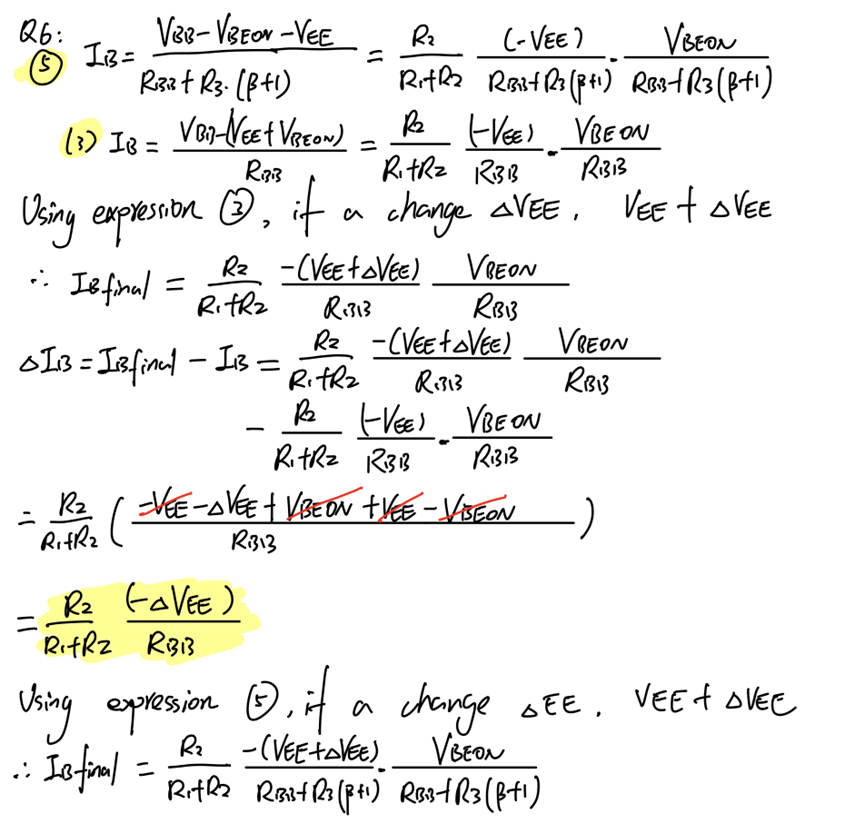 Q6:
⑤ IB = (VBB - VBEON - VEE) / (RBB + R3·(β+1)) = R2/(R1+R2) (-VEE)/(RBB+R3(β+1)) - VBEON/(RBB+R3(β+1))
(3) IB = (VBB-(VEE+VBEON))/RBB = R2/(R1+R2) (-VEE)/RBB - VBEON/RBB
Using expression ③, if a change △VEE, VEE + △VEE
∴ IBfinal = R2/(R1+R2) -(VEE+△VEE)/RBB VBEON/RBB
△IB = IBfinal - IB = R2/(R1+R2) -(VEE+△VEE)/RBB VBEON/RBB
- R2/(R1+R2) (-VEE)/RBB - VBEON/RBB
= R2/(R1+R2) ( (-VEE - △VEE + VBEON + VEE - VBEON)/RBB )
= R2/(R1+R2) (-△VEE)/RBB
Using expression ⑤, if a change △EE, VEE + △VEE
∴ IBfinal = R2/(R1+R2) -(VEE+△VEE)/(RBB+R3(β+1)) - VBEON/(RBB+R3(β+1))